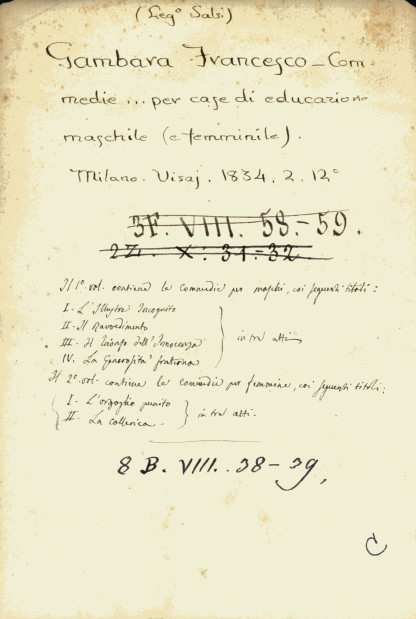 (Leg° Salsi)
Gambara Francesco _ Com
medie ... per case di educazione
maschile (e femminile).
Milano. Visaj. 1834. 2. 12°
3F. VIII. 58.-59.
2Z. X. 31.-32.
Il 1°. vol. contiene le commedie per maschi, coi seguenti titoli:
I. L'Illustre Incognito
II. Il Ravvedimento
III. Il Trionfo dell'Innocenza
IV. La Generosità fraterna
in tre atti
Il 2°. vol. contiene le commedie per femmine, coi seguenti titoli:
I. L'orgoglio punito
II. La collerica.
in tre atti.
8 B. VIII. 38-39.
C